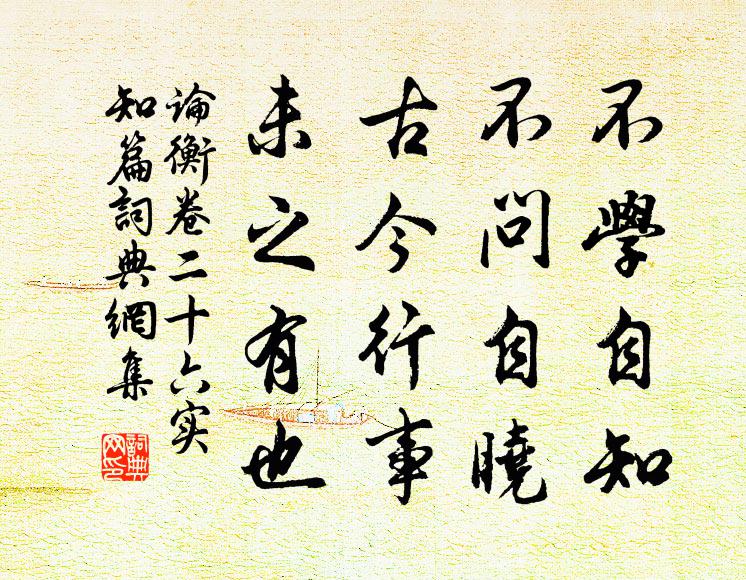 不學自知
不問自曉
古今行事
未之有也
論衡卷二十六实
知篇詞典網集
詞典
网印